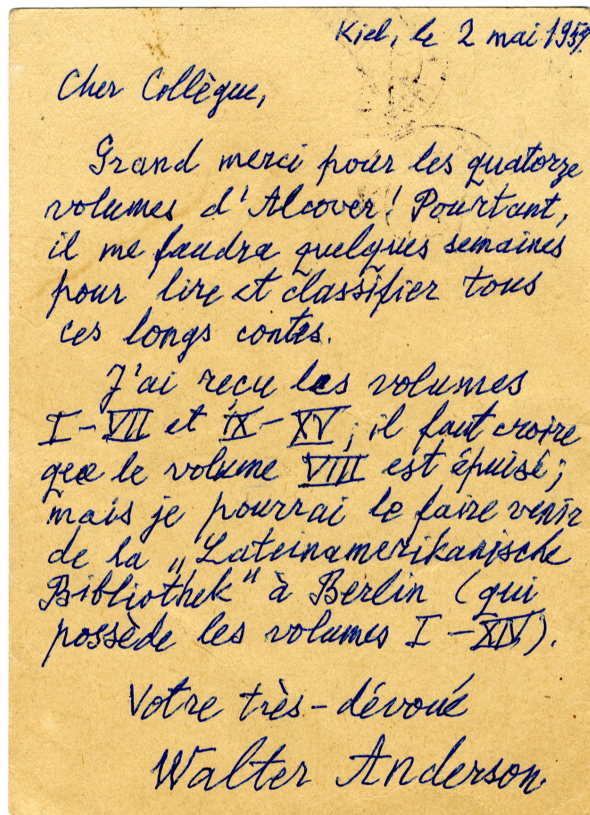 Kiel, le 2 mai 1959
Cher Collègue,
Grand merci pour les quatorze
volumes d'Alcover! Pourtant,
il me faudra quelques semaines
pour lire et classifier tous
ces longs contes.
J'ai reçu les volumes
I-VII et IX-XV; il faut croire
que le volume VIII est épuisé;
mais je pourrai le faire venir
de la „Lateinamerikanische
Bibliothek" à Berlin (qui
possède les volumes I-XIV).
Votre très-dévoué
Walter Anderson.